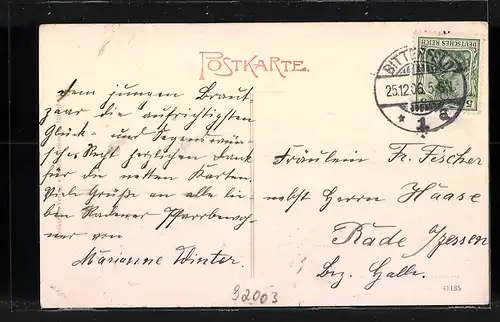 POSTKARTE.
Dem jungen Braut
paar die aufrichtigsten
Glück- und Segenswün-
sche. Recht herzlichen Dank
für die netten Karten.
Viele Grüße an alle lie-
ben Radener Pfarrbewoh-
ner von
Marianne Winter.
DEUTSCHES REICH
5
25.12.06.5-
* 1 a
Fräulein Fr. Fischer
nebst Herrn Haase
Rade Jessen
Bez. Halle.
92003
41185